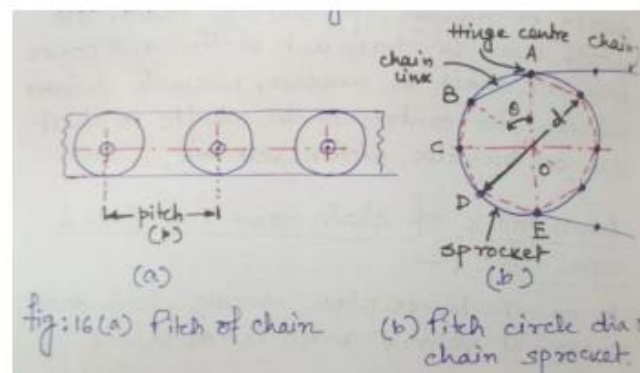 Hinge centre
A
chain
chain
link
B
θ
d
C
O
pitch
(p)
D
E
sprocket
(a)
(b)
fig: 16 (a) Pitch of chain
(b) Pitch circle dia
chain sprocket.